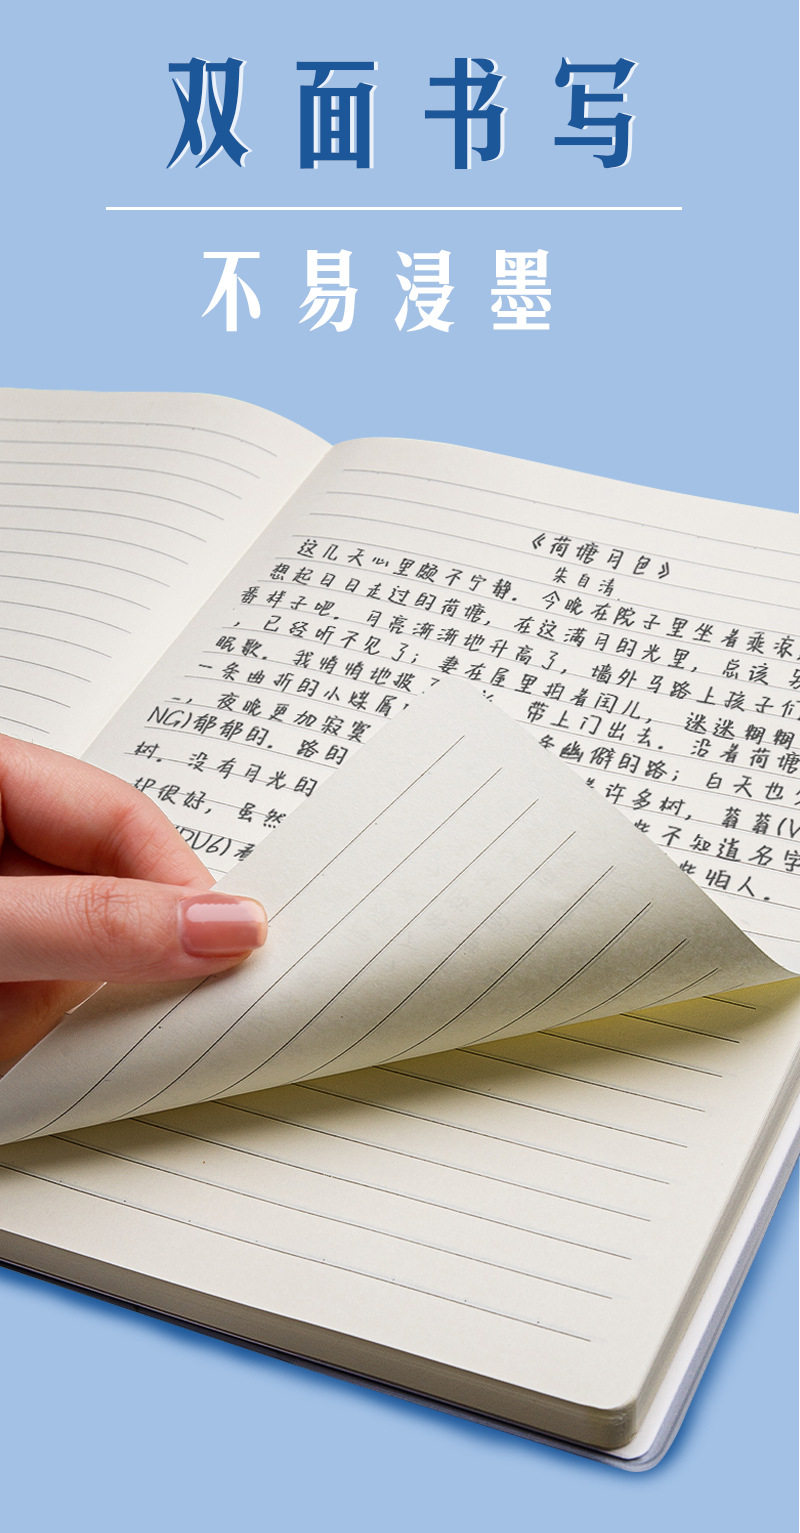 双面书写
不易浸墨
《荷塘月色》
朱自清
这几天心里颇不宁静。今晚在院子里坐着乘凉
想起日日走过的荷塘，在这满月的光里，总该
番样子吧。月亮渐渐地升高了，墙外马路上孩子们
，已经听不见了；妻在屋里拍着闰儿，迷迷糊糊
眠歌。我悄悄地披了 带上门出去。沿着荷塘
一条曲折的小煤屑 幽僻的路；白天也
，夜晚更加寂寞 许多树，蓊蓊(W
NG)郁郁的。路的 些不知道名字
树。没有月光的 些怕人。
却很好，虽然
DU6)看